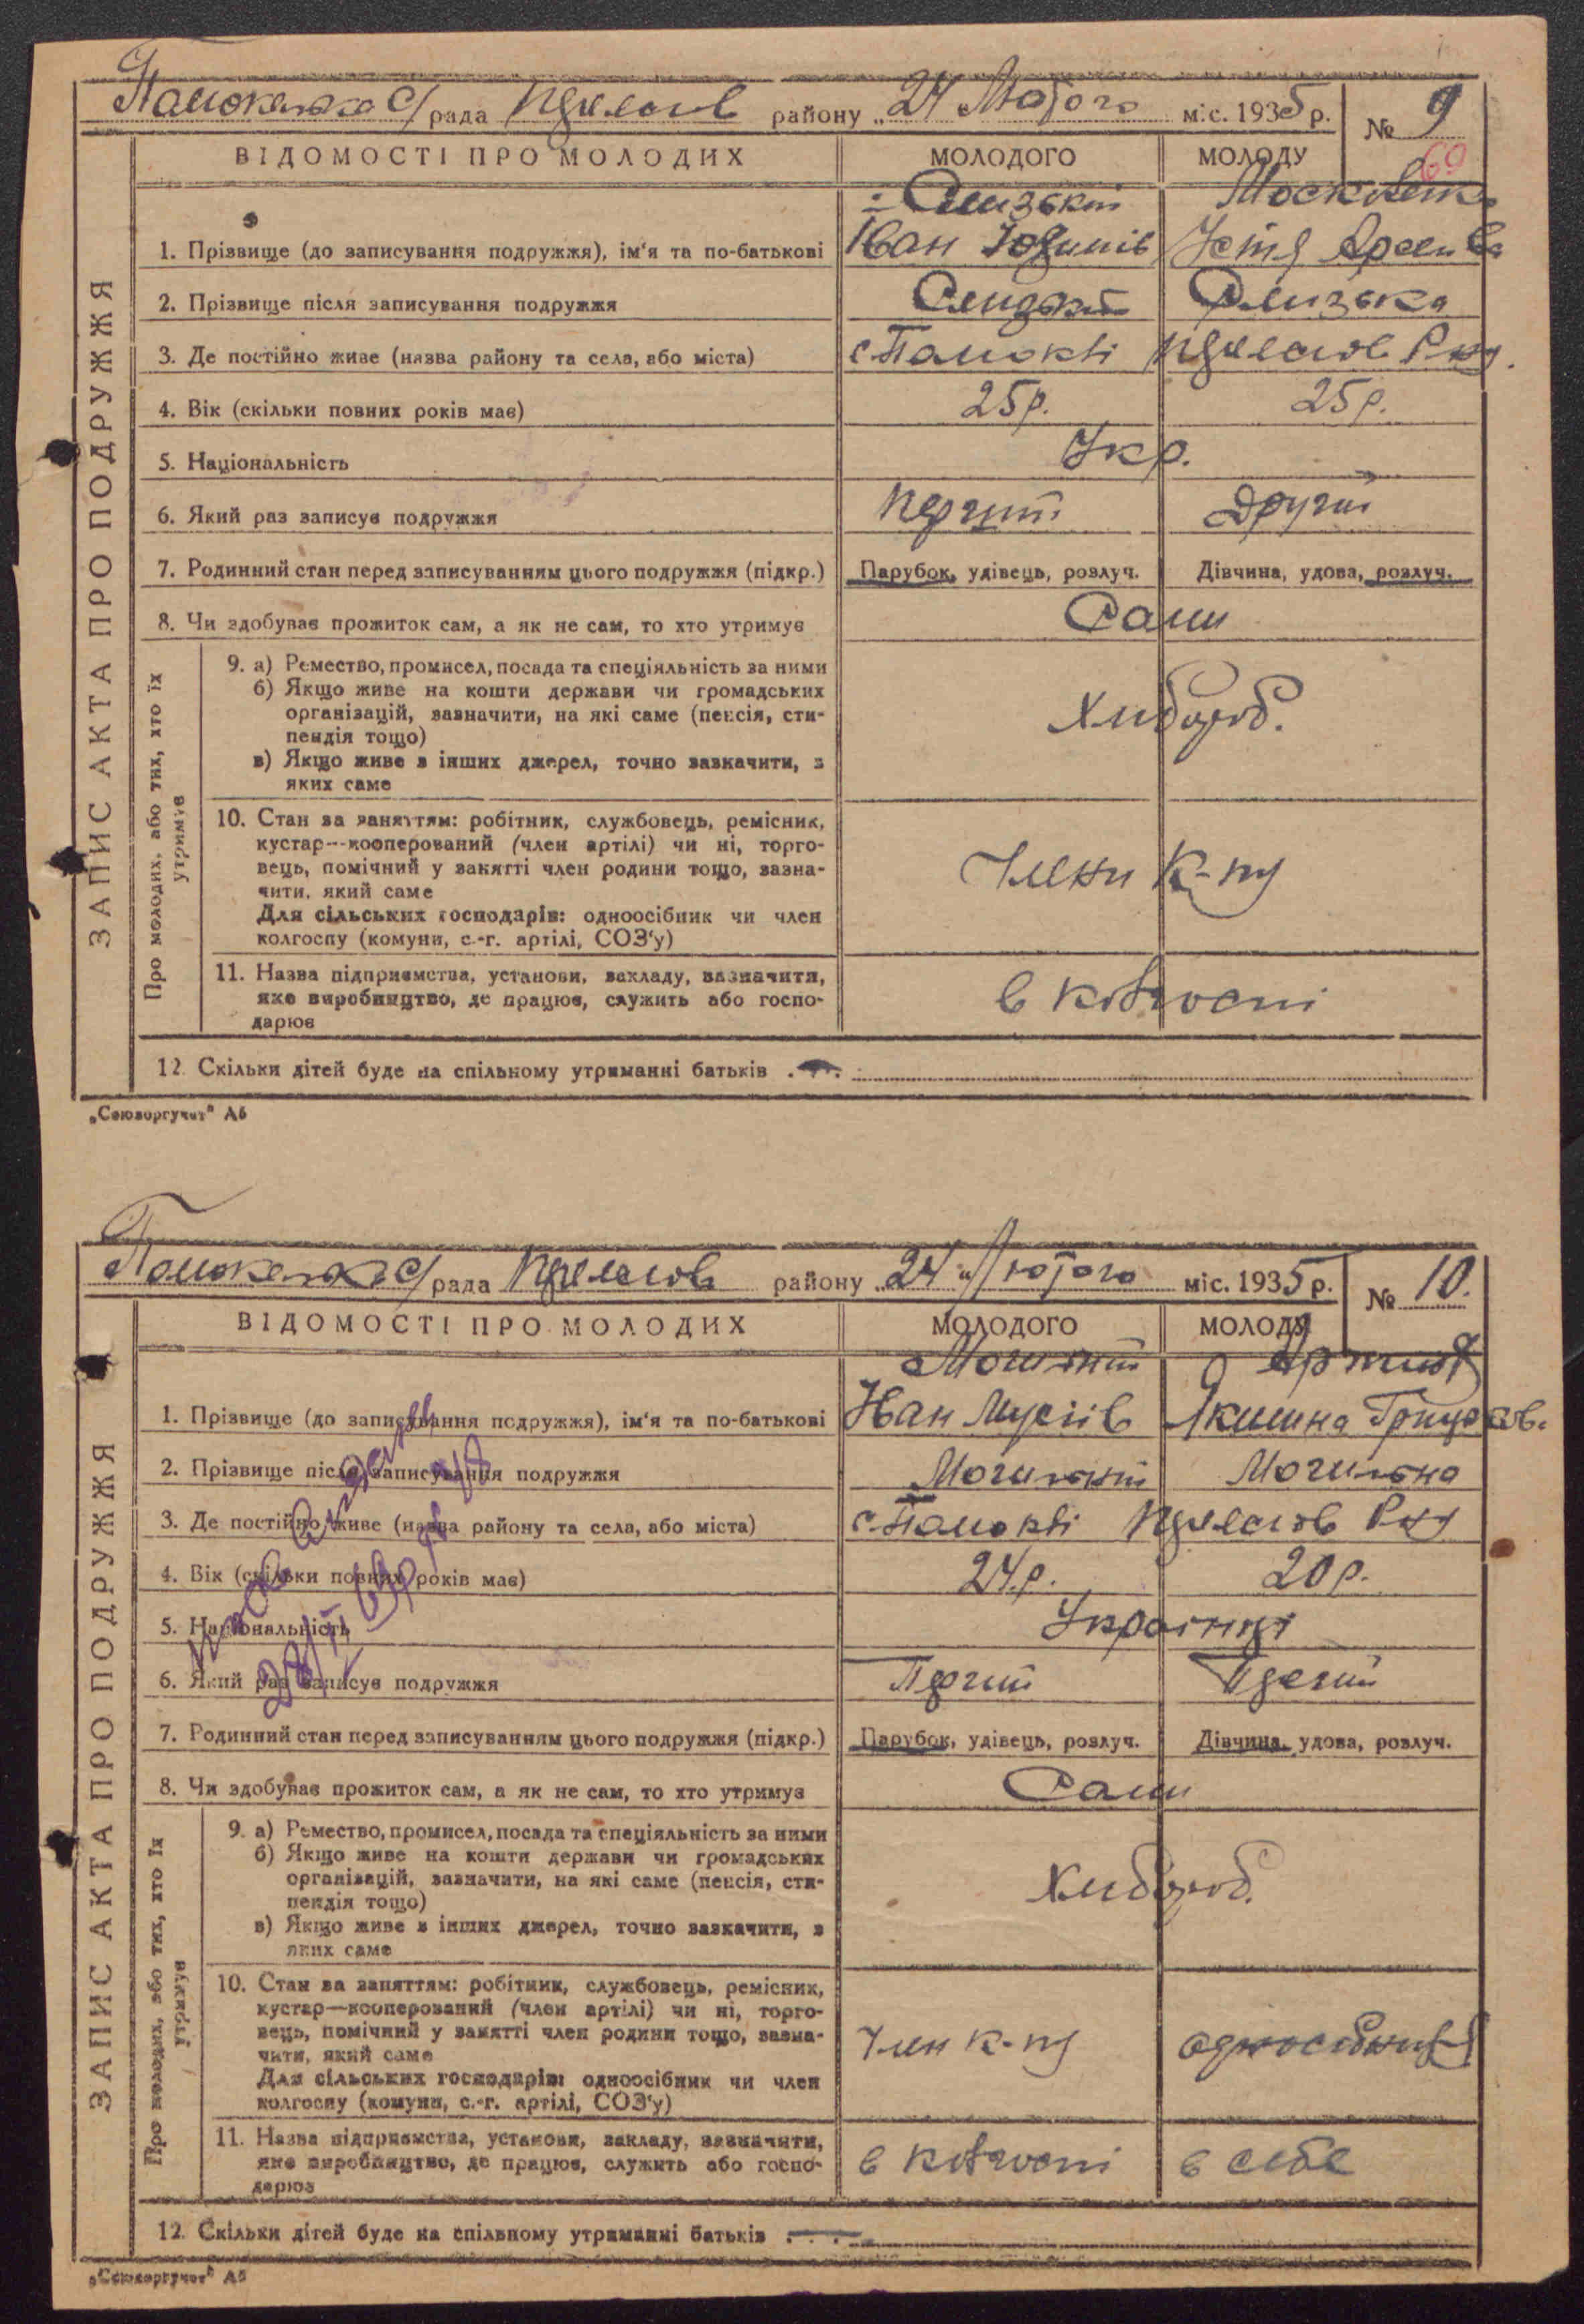 с/рада району „24 Лютого міс. 1935 р. № 9
69
ВІДОМОСТІ ПРО МОЛОДИХ МОЛОДОГО МОЛОДУ
ЗАПИС АКТА ПРО ПОДРУЖЖЯ
1. Прізвище (до записування подружжя), ім'я та по-батькові Іван
2. Прізвище після записування подружжя
3. Де постійно живе (назва району та села, або міста)
4. Вік (скільки повних років має) 25 р. 25 р.
5. Національність Укр.
6. Який раз записує подружжя Перший Другий
7. Родинний стан перед записуванням цього подружжя (підкр.) Парубок, удівець, розлуч. Дівчина, удова, розлуч.
8. Чи здобуває прожиток сам, а як не сам, то хто утримує Сами
Про молодих, або тих, хто їх утримує
9. а) Ремество, промисел, посада та спеціяльність за ними
б) Якщо живе на кошти держави чи громадських
організацій, зазначити, на які саме (пенсія, сти-
пендія тощо)
в) Якщо живе з інших джерел, точно зазначити, з
яких саме
Хлібороб.
10. Стан за заняттям: робітник, службовець, ремісник,
кустар—кооперований (член артілі) чи ні, торго-
вець, помічний у занятті член родини тощо, зазна-
чити, який саме
Для сільських господарів: одноосібник чи член
колгоспу (комуни, с.-г. артілі, СОЗ'у)
Члени к-пу
11. Назва підприємства, установи, закладу, зазначити,
яке виробництво, де працює, служить або госпо-
дарює
в колгоспі
12. Скільки дітей буде на спільному утриманні батьків
„Союзоргучет" А5
с/рада району „24" Лютого міс. 1935 р. № 10.
ВІДОМОСТІ ПРО МОЛОДИХ МОЛОДОГО МОЛОДУ
ЗАПИС АКТА ПРО ПОДРУЖЖЯ
1. Прізвище (до записування подружжя), ім'я та по-батькові Іван Мусіїв Якилина
2. Прізвище після записування подружжя
3. Де постійно живе (назва району та села, або міста)
4. Вік (скільки повних років має) 24 р. 20 р.
5. Національність Українці
6. Який раз записує подружжя Перший Перший
7. Родинний стан перед записуванням цього подружжя (підкр.) Парубок, удівець, розлуч. Дівчина, удова, розлуч.
8. Чи здобуває прожиток сам, а як не сам, то хто утримує Сами
Про молодих, або тих, хто їх утримує
9. а) Ремество, промисел, посада та спеціяльність за ними
б) Якщо живе на кошти держави чи громадських
організацій, зазначити, на які саме (пенсія, сти-
пендія тощо)
в) Якщо живе з інших джерел, точно зазначити, з
яких саме
Хлібороб.
10. Стан за заняттям: робітник, службовець, ремісник,
кустар—кооперований (член артілі) чи ні, торго-
вець, помічний у занятті член родини тощо, зазна-
чити, який саме
Для сільських господарів: одноосібник чи член
колгоспу (комуни, с.-г. артілі, СОЗ'у)
Член к-пу
11. Назва підприємства, установи, закладу, зазначити,
яке виробництво, де працює, служить або госпо-
дарює
в колгоспі в себе
12. Скільки дітей буде на спільному утриманні батьків
„Союзоргучет" А5